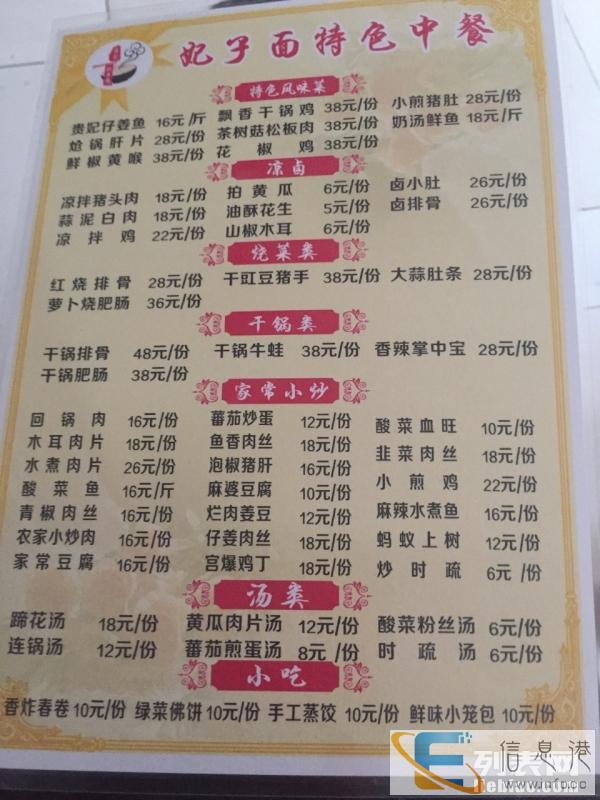 妃子面特色中餐
特色风味菜
贵妃仔姜鱼 16元/斤 飘香干锅鸡 38元/份 小煎猪肚 28元/份
炝锅肝片 28元/份 茶树菇松板肉 38元/份 奶汤鲜鱼 18元/斤
鲜椒黄喉 38元/份 花椒鸡 38元/份
凉卤
凉拌猪头肉 18元/份 拍黄瓜 6元/份 卤小肚 26元/份
蒜泥白肉 18元/份 油酥花生 5元/份 卤排骨 26元/份
凉拌鸡 22元/份 山椒木耳 6元/份
烧菜类
红烧排骨 28元/份 干豇豆猪手 38元/份 大蒜肚条 28元/份
萝卜烧肥肠 36元/份
干锅类
干锅排骨 48元/份 干锅牛蛙 38元/份 香辣掌中宝 28元/份
干锅肥肠 38元/份
家常小炒
回锅肉 16元/份 蕃茄炒蛋 12元/份 酸菜血旺 10元/份
木耳肉片 18元/份 鱼香肉丝 18元/份 韭菜肉丝 18元/份
水煮肉片 26元/份 泡椒猪肝 16元/份 小煎鸡 22元/份
酸菜鱼 16元/斤 麻婆豆腐 10元/份 麻辣水煮鱼 16元/份
青椒肉丝 16元/份 烂肉姜豆 12元/份 蚂蚁上树 12元/份
农家小炒肉 16元/份 仔姜肉丝 18元/份 炒时疏 6元/份
家常豆腐 16元/份 宫爆鸡丁 18元/份
汤类
蹄花汤 18元/份 黄瓜肉片汤 12元/份 酸菜粉丝汤 6元/份
连锅汤 12元/份 蕃茄煎蛋汤 8元/份 时疏汤 6元/份
小吃
香炸春卷 10元/份 绿菜佛饼 10元/份 手工蒸饺 10元/份 鲜味小笼包 10元/份
列表网
信息港